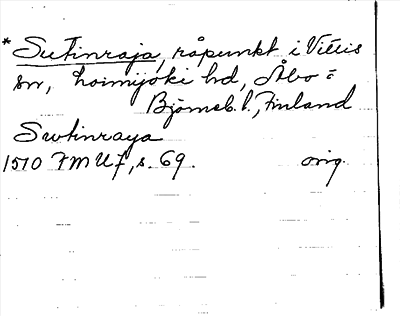 *Sutinraja, råpunkt i Vittis
sn, Loimijoki hd, Åbo=
Björneb. l., Finland
Swtinraya
1510 FMU 7, s. 69. orig.